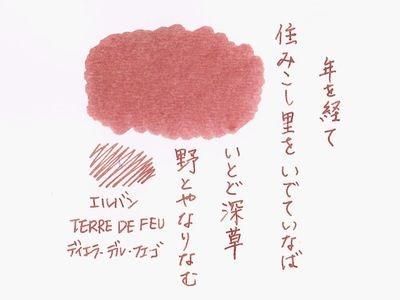 年を経て
住みこし里をいでていなば
いとど深草
野とやなりなむ
エルバン
TERRE DE FEU
ティエラ・デル・フエゴ